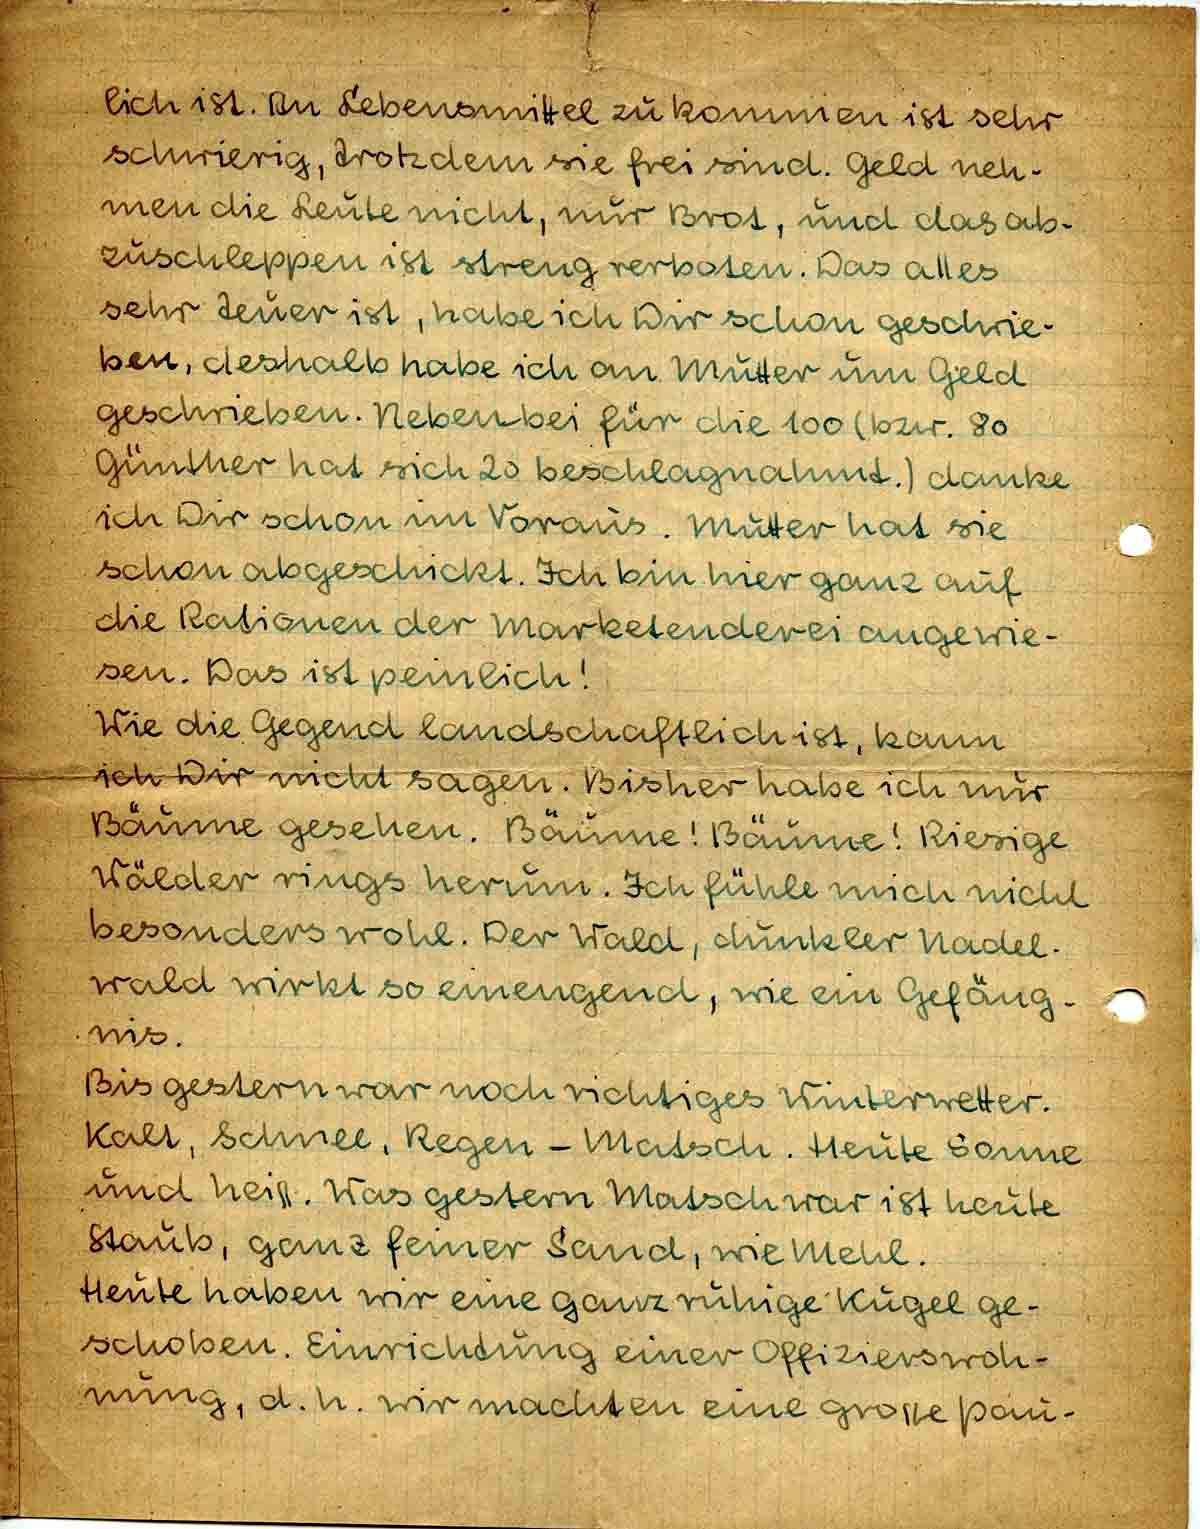 lich ist. An Lebensmittel zu kommen ist sehr
schwierig, trotzdem sie frei sind. Geld neh-
men die Leute nicht, nur Brot, und das ab-
zuschleppen ist streng verboten. Das alles
sehr teuer ist, habe ich Dir schon geschrie-
ben, deshalb habe ich an Mutter um Geld
geschrieben. Nebenbei für die 100 (bzw. 80
Günther hat sich 20 beschlagnahmt.) danke
ich Dir schon im Voraus. Mutter hat sie
schon abgeschickt. Ich bin hier ganz auf
die Rationen der Marketenderei angewie-
sen. Das ist peinlich!
Wie die Gegend landschaftlich ist, kann
ich Dir nicht sagen. Bisher habe ich nur
Bäume gesehen. Bäume! Bäume! Riesige
Wälder rings herum. Ich fühle mich nicht
besonders wohl. Der Wald, dunkler Nadel-
wald wirkt so einengend, wie ein Gefäng-
nis.
Bis gestern war noch richtiges Winterwetter.
Kalt, Schnee, Regen – Matsch. Heute Sonne
und heiß. Was gestern Matsch war ist heute
Staub, ganz feiner Sand, wie Mehl.
Heute haben wir eine ganz ruhige Kugel ge-
schoben. Einrichtung einer Offizierswoh-
nung, d.h. wir machten eine große Pau-